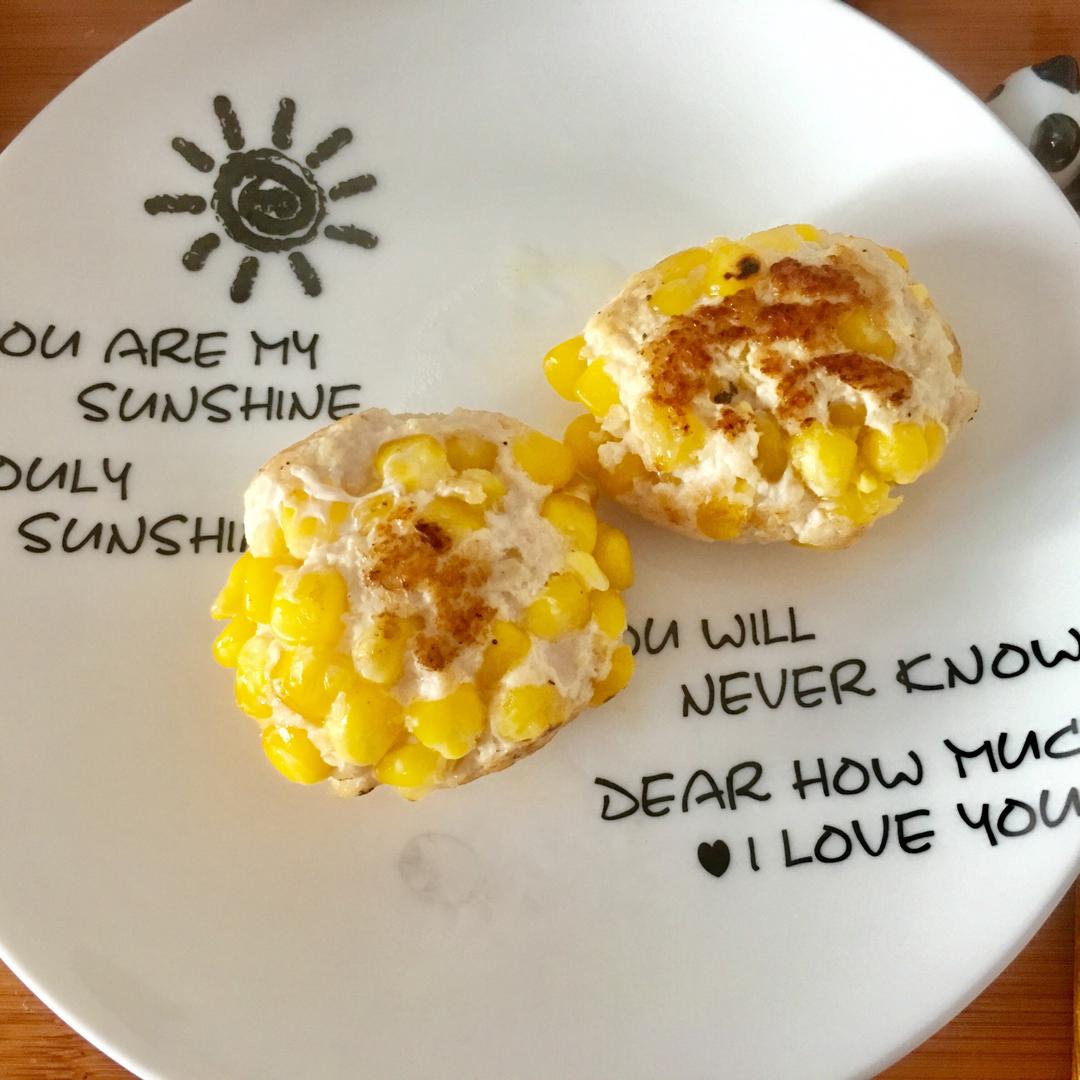 OU ARE MY
SUNSHINE
OULY
SUNSHI
OU WILL
NEVER KNOW
DEAR HOW MUC
I LOVE YOU